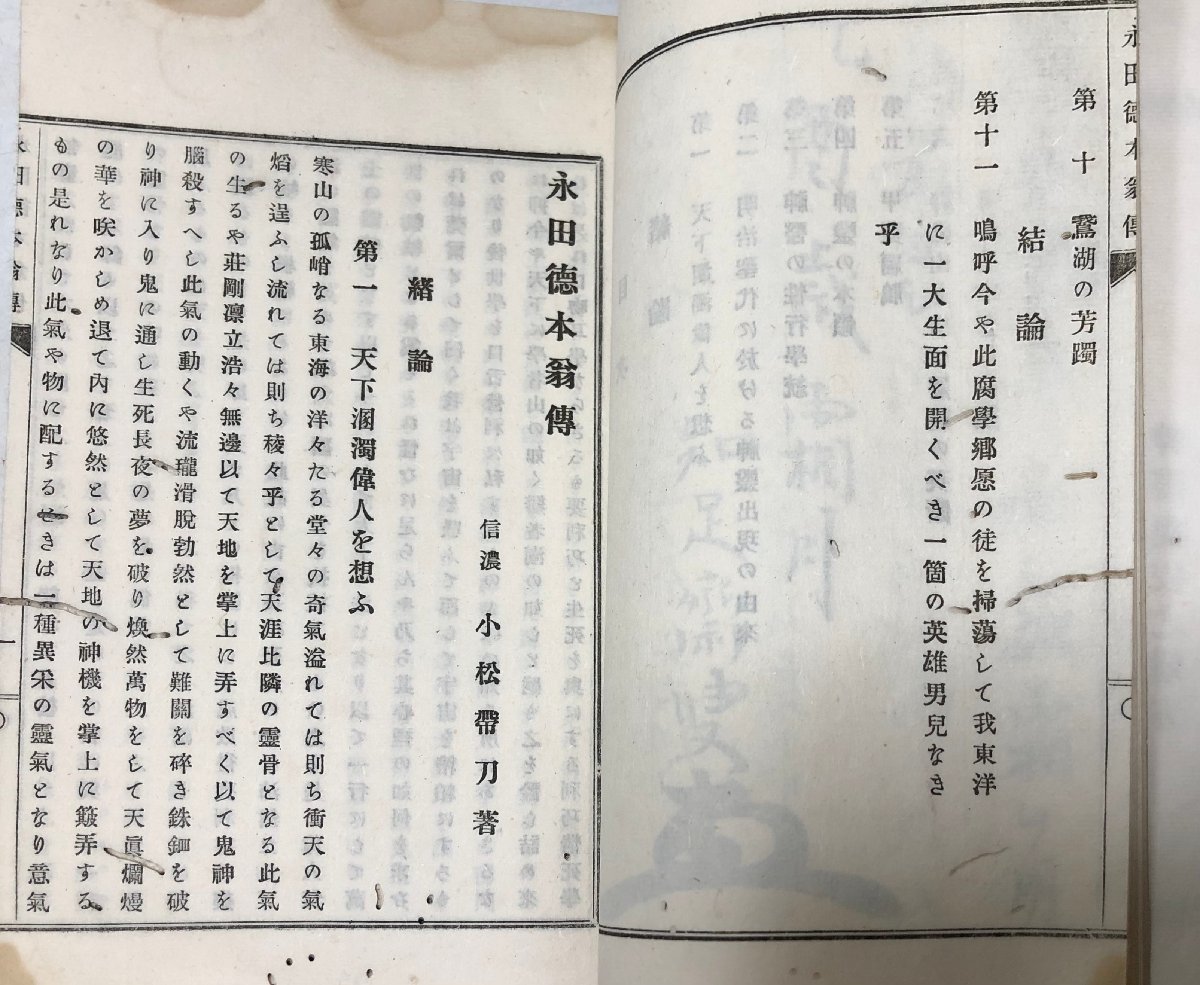 永田德本翁傳
第十 鵞湖の芳躅 一
結論
第十一 嗚呼今や此腐學鄕愿の徒を掃蕩して我東洋
に一大生面を開くべき一箇の英雄男兒なき
乎
永田德本翁傳
信濃 小松帶刀著
緖論
第一 天下溷濁偉人を想ふ
寒山の孤峭なる東海の洋々たる堂々の奇氣溢れては則ち衝天の氣
焰を逞ふし流れては則ち稜々乎として天涯比隣の靈骨となる此氣
の生るや莊剛凛立浩々無邊以て天地を掌上に弄すべく以て鬼神を
腦殺すへし此氣の動くや流瓏滑脫勃然として難關を碎き銖鈿を破
り神に入り鬼に通し生死長夜の夢を破り煥然萬物をして天眞爛熳
の華を咲かしめ退て內に悠然として天地の神機を掌上に簸弄する
もの是れなり此氣や物に配するときは一種異采の靈氣となり意氣
永田德本翁傳
一